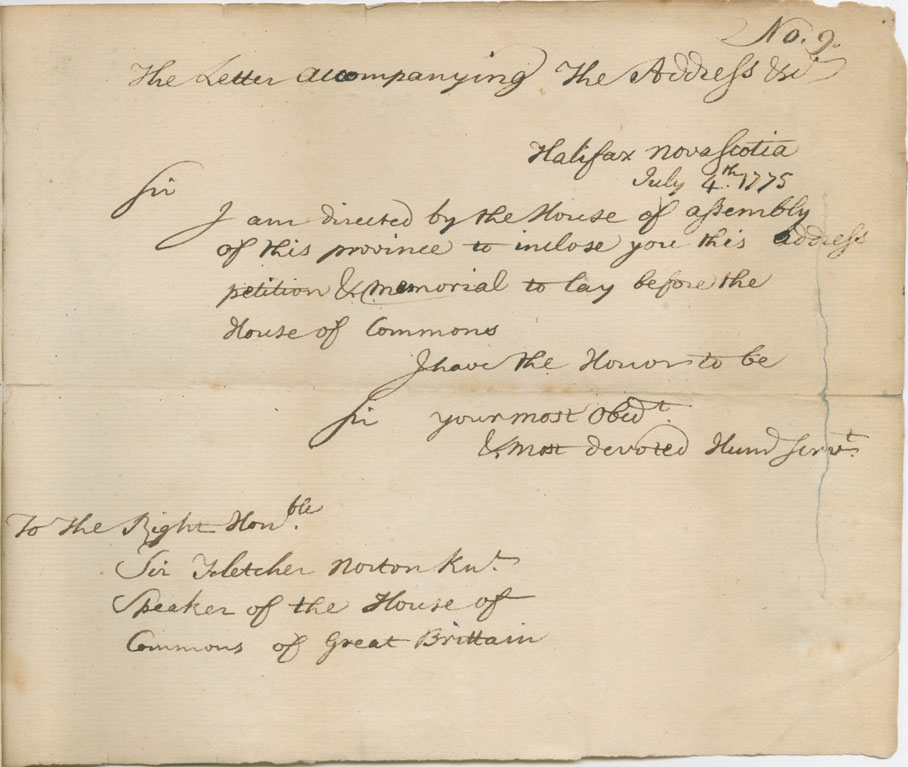 No. 9.
The Letter accompanying The Address &c.
Halifax Nova Scotia
July 4th. 1775
Sir
I am directed by the House of assembly
of this province to inclose you this address
petition & memorial to lay before the
House of Commons
I have the Honor to be
Sir your most Obedt.
& most devoted Hum Servt.
To the Right Honble.
Sir Fletcher Norton Knt.
Speaker of the House of
Commons of Great Brittain